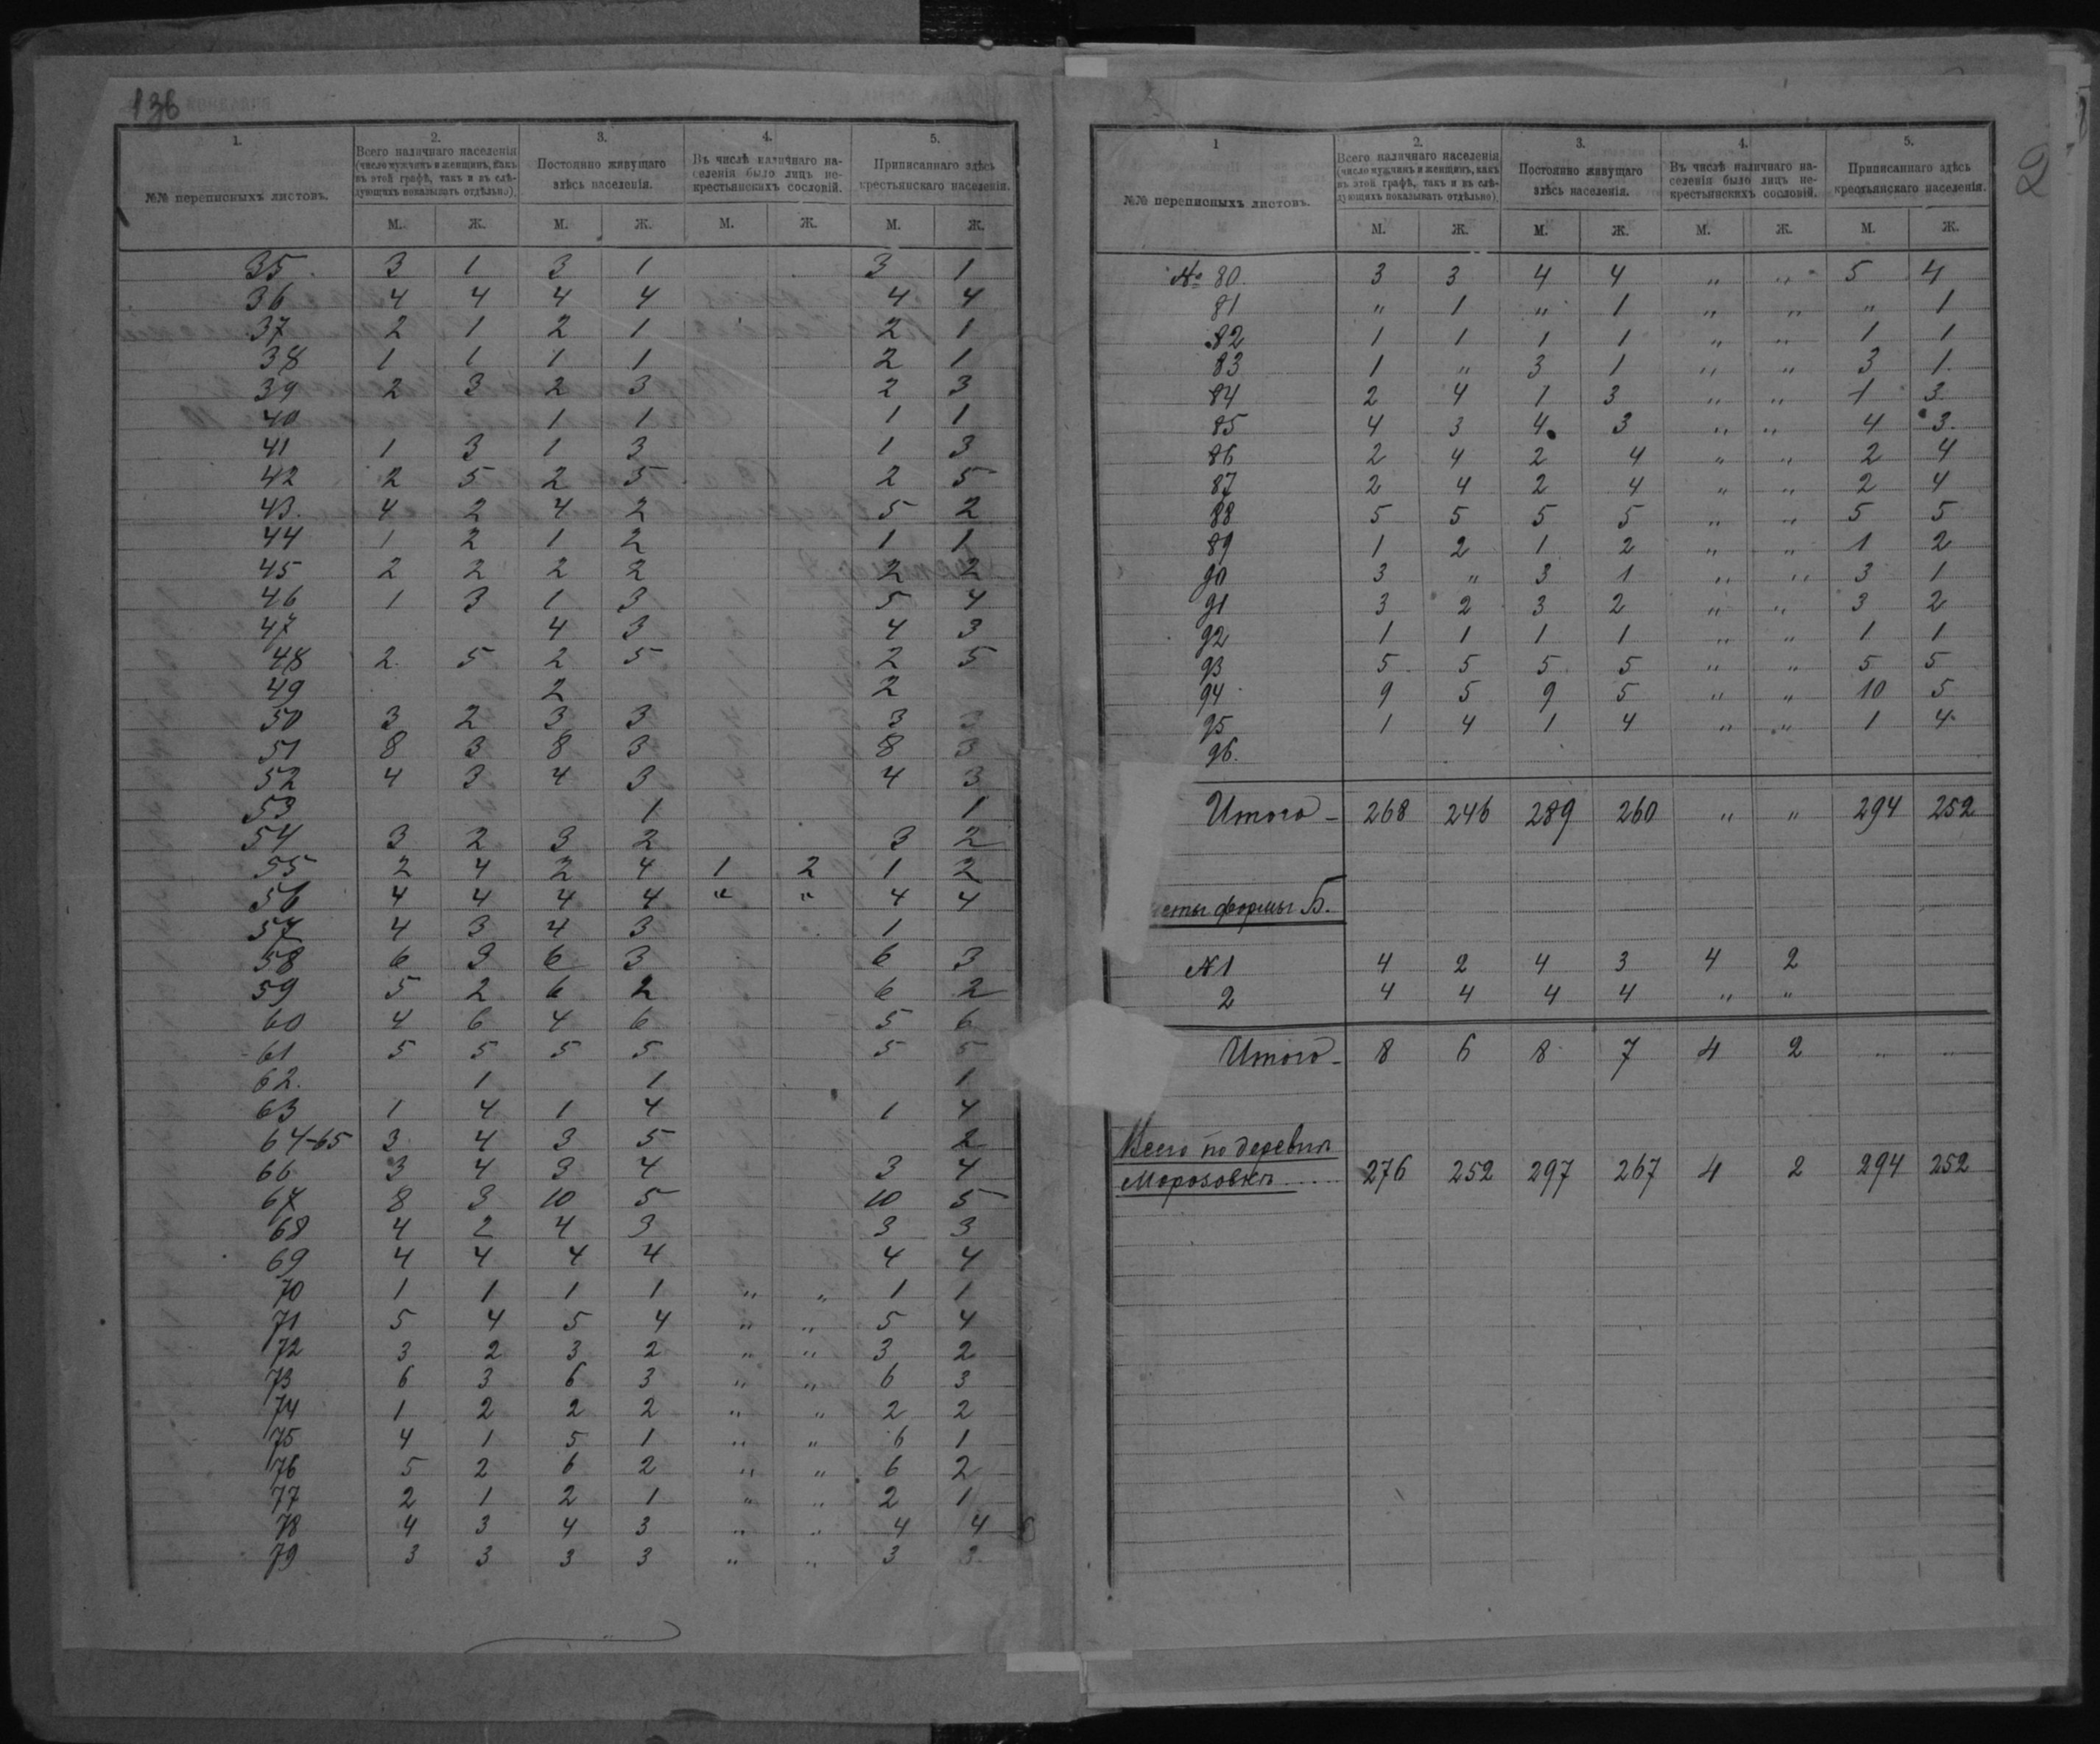 136
1. 2. 3. 4. 5.
№№ переписныхъ листовъ. Всего наличнаго населенія (число мужчинъ и женщинъ, какъ въ этой графѣ, такъ и въ слѣдующихъ показывать отдѣльно). Постоянно живущаго здѣсь населенія. Въ числѣ наличнаго населенія было лицъ некрестьянскихъ сословій. Приписаннаго здѣсь крестьянскаго населенія.
М. Ж. М. Ж. М. Ж. М. Ж.
35 3 1 3 1 3 1
36 4 4 4 4 4 4
37 2 1 2 1 2 1
38 1 1 1 1 2 1
39 2 3 2 3 2 3
40 1 1 1 1
41 1 3 1 3 1 3
42 2 5 2 5 2 5
43. 4 2 4 2 5 2
44 1 2 1 2 1 1
45 2 2 2 2 2 2
46 1 3 1 3 5 4
47 4 3 4 3
48 2 5 2 5 2 5
49 2 2
50 3 2 3 3 3 3
51 8 3 8 3 8 3
52 4 3 4 3 4 3
53 1 1
54 3 2 3 2 3 2
55 2 4 2 4 1 2 1 2
56 4 4 4 4 " " 4 4
57 4 3 4 3 1
58 6 3 6 3 6 3
59 5 2 6 2 6 2
60 4 6 4 6 5 6
61 5 5 5 5 5 5
62. 1 1 1
63 1 4 1 4 1 4
64-65 3 4 3 5 2
66 3 4 3 4 3 4
67 8 3 10 5 10 5
68 4 2 4 3 3 3
69 4 4 4 4 4 4
70 1 1 1 1 " " 1 1
71 5 4 5 4 " " 5 4
72 3 2 3 2 " " 3 2
73 6 3 6 3 " " 6 3
74 1 2 2 2 " " 2 2
75 4 1 5 1 " " 6 1
76 5 2 6 2 " " 6 2
77 2 1 2 1 " " 2 1
78 4 3 4 3 " " 4 4
79 3 3 3 3 " " 3 3
2
1 2. 3. 4. 5.
№№ переписныхъ листовъ. Всего наличнаго населенія (число мужчинъ и женщинъ, какъ въ этой графѣ, такъ и въ слѣдующихъ показывать отдѣльно). Постоянно живущаго здѣсь населенія. Въ числѣ наличнаго населенія было лицъ некрестьянскихъ сословій. Приписаннаго здѣсь крестьянскаго населенія.
М. Ж. М. Ж. М. Ж. М. Ж.
№ 80. 3 3 4 4 " " 5 4
81 " 1 " 1 " " " 1
82 1 1 1 1 " " 1 1
83 1 " 3 1 " " 3 1.
84 2 4 1 3 " " 1 3
85 4 3 4 3 " " 4 3.
86 2 4 2 4 " " 2 4
87 2 4 2 4 " " 2 4
88 5 5 5 5 " " 5 5
89 1 2 1 2 " " 1 2
90 3 " 3 1 " " 3 1
91 3 2 3 2 " " 3 2
92 1 1 1 1 " " 1 1
93 5 5 5 5 " " 5 5
94 9 5 9 5 " " 10 5
95 1 4 1 4 " " 1 4
96.
Итого - 268 246 289 260 " " 294 252
формы Б.
№ 1 4 2 4 3 4 2
2 4 4 4 4 " "
Итого - 8 6 8 7 4 2 " "
Всего по деревнѣ
Морозовкѣ ..... 276 252 297 267 4 2 294 252